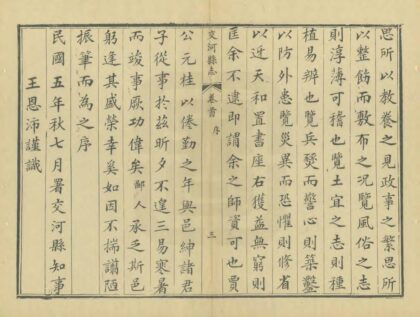 思所以教養之見政事之繁思所
以整飭而敷布之况覽風俗之志
則淳薄可稽也覽土宜之志則種
植易辨也覽兵燹而警心則築鑿
以防外患覽災異而恐懼則修省
以近天和置書座右獲益無窮則
匡余不逮即謂余之師資可也賈
交河縣志 卷首 序 三
公元桂以倦勤之年與邑紳諸君
子從事於茲昕夕不遑三易寒暑
而竣事厥功偉矣鄙人承乏斯邑
躬逢其盛榮幸奚如因不揣譾陋
振筆而為之序
民國五年秋七月署交河縣知事
王恩沛謹識